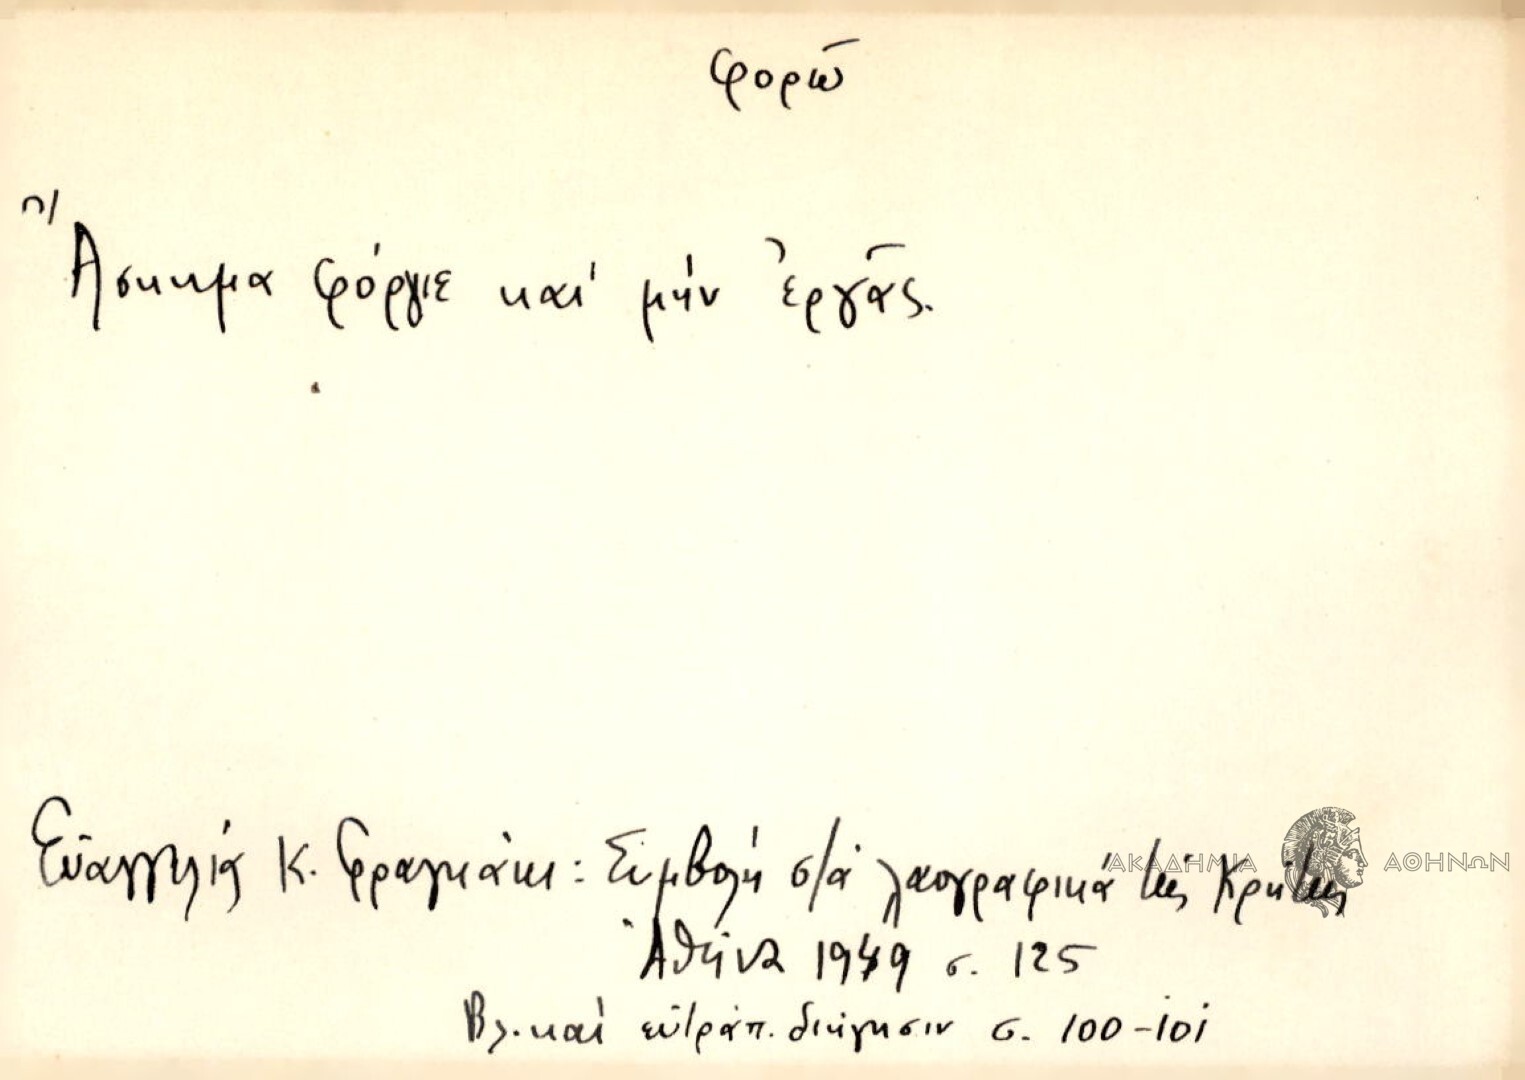 φορῶ
Ἄσκημα φόργιε καί μήν ἐργᾶς.
Εὐαγγελία Κ. Φραγκάκι: Συμβολή στά λαογραφικά τῆς Κρήτης
ΑΚΑΔΗΜΙΑ ΑΘΗΝΩΝ
Ἀθήνα 1949 σ. 125
Βλ. καί εὐτράπ. διήγησιν σ. 100-101